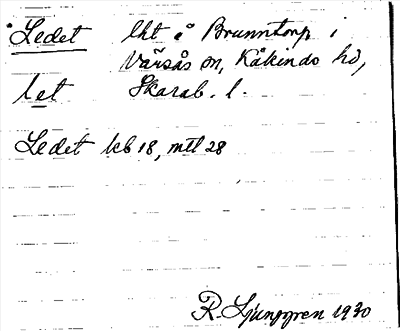 Ledet lht å Brunntorp i
Varsås sn, Kåkinds hd,
let Skarab. l.
Ledet kb 18, mtl 28
R. Ljunggren 1930